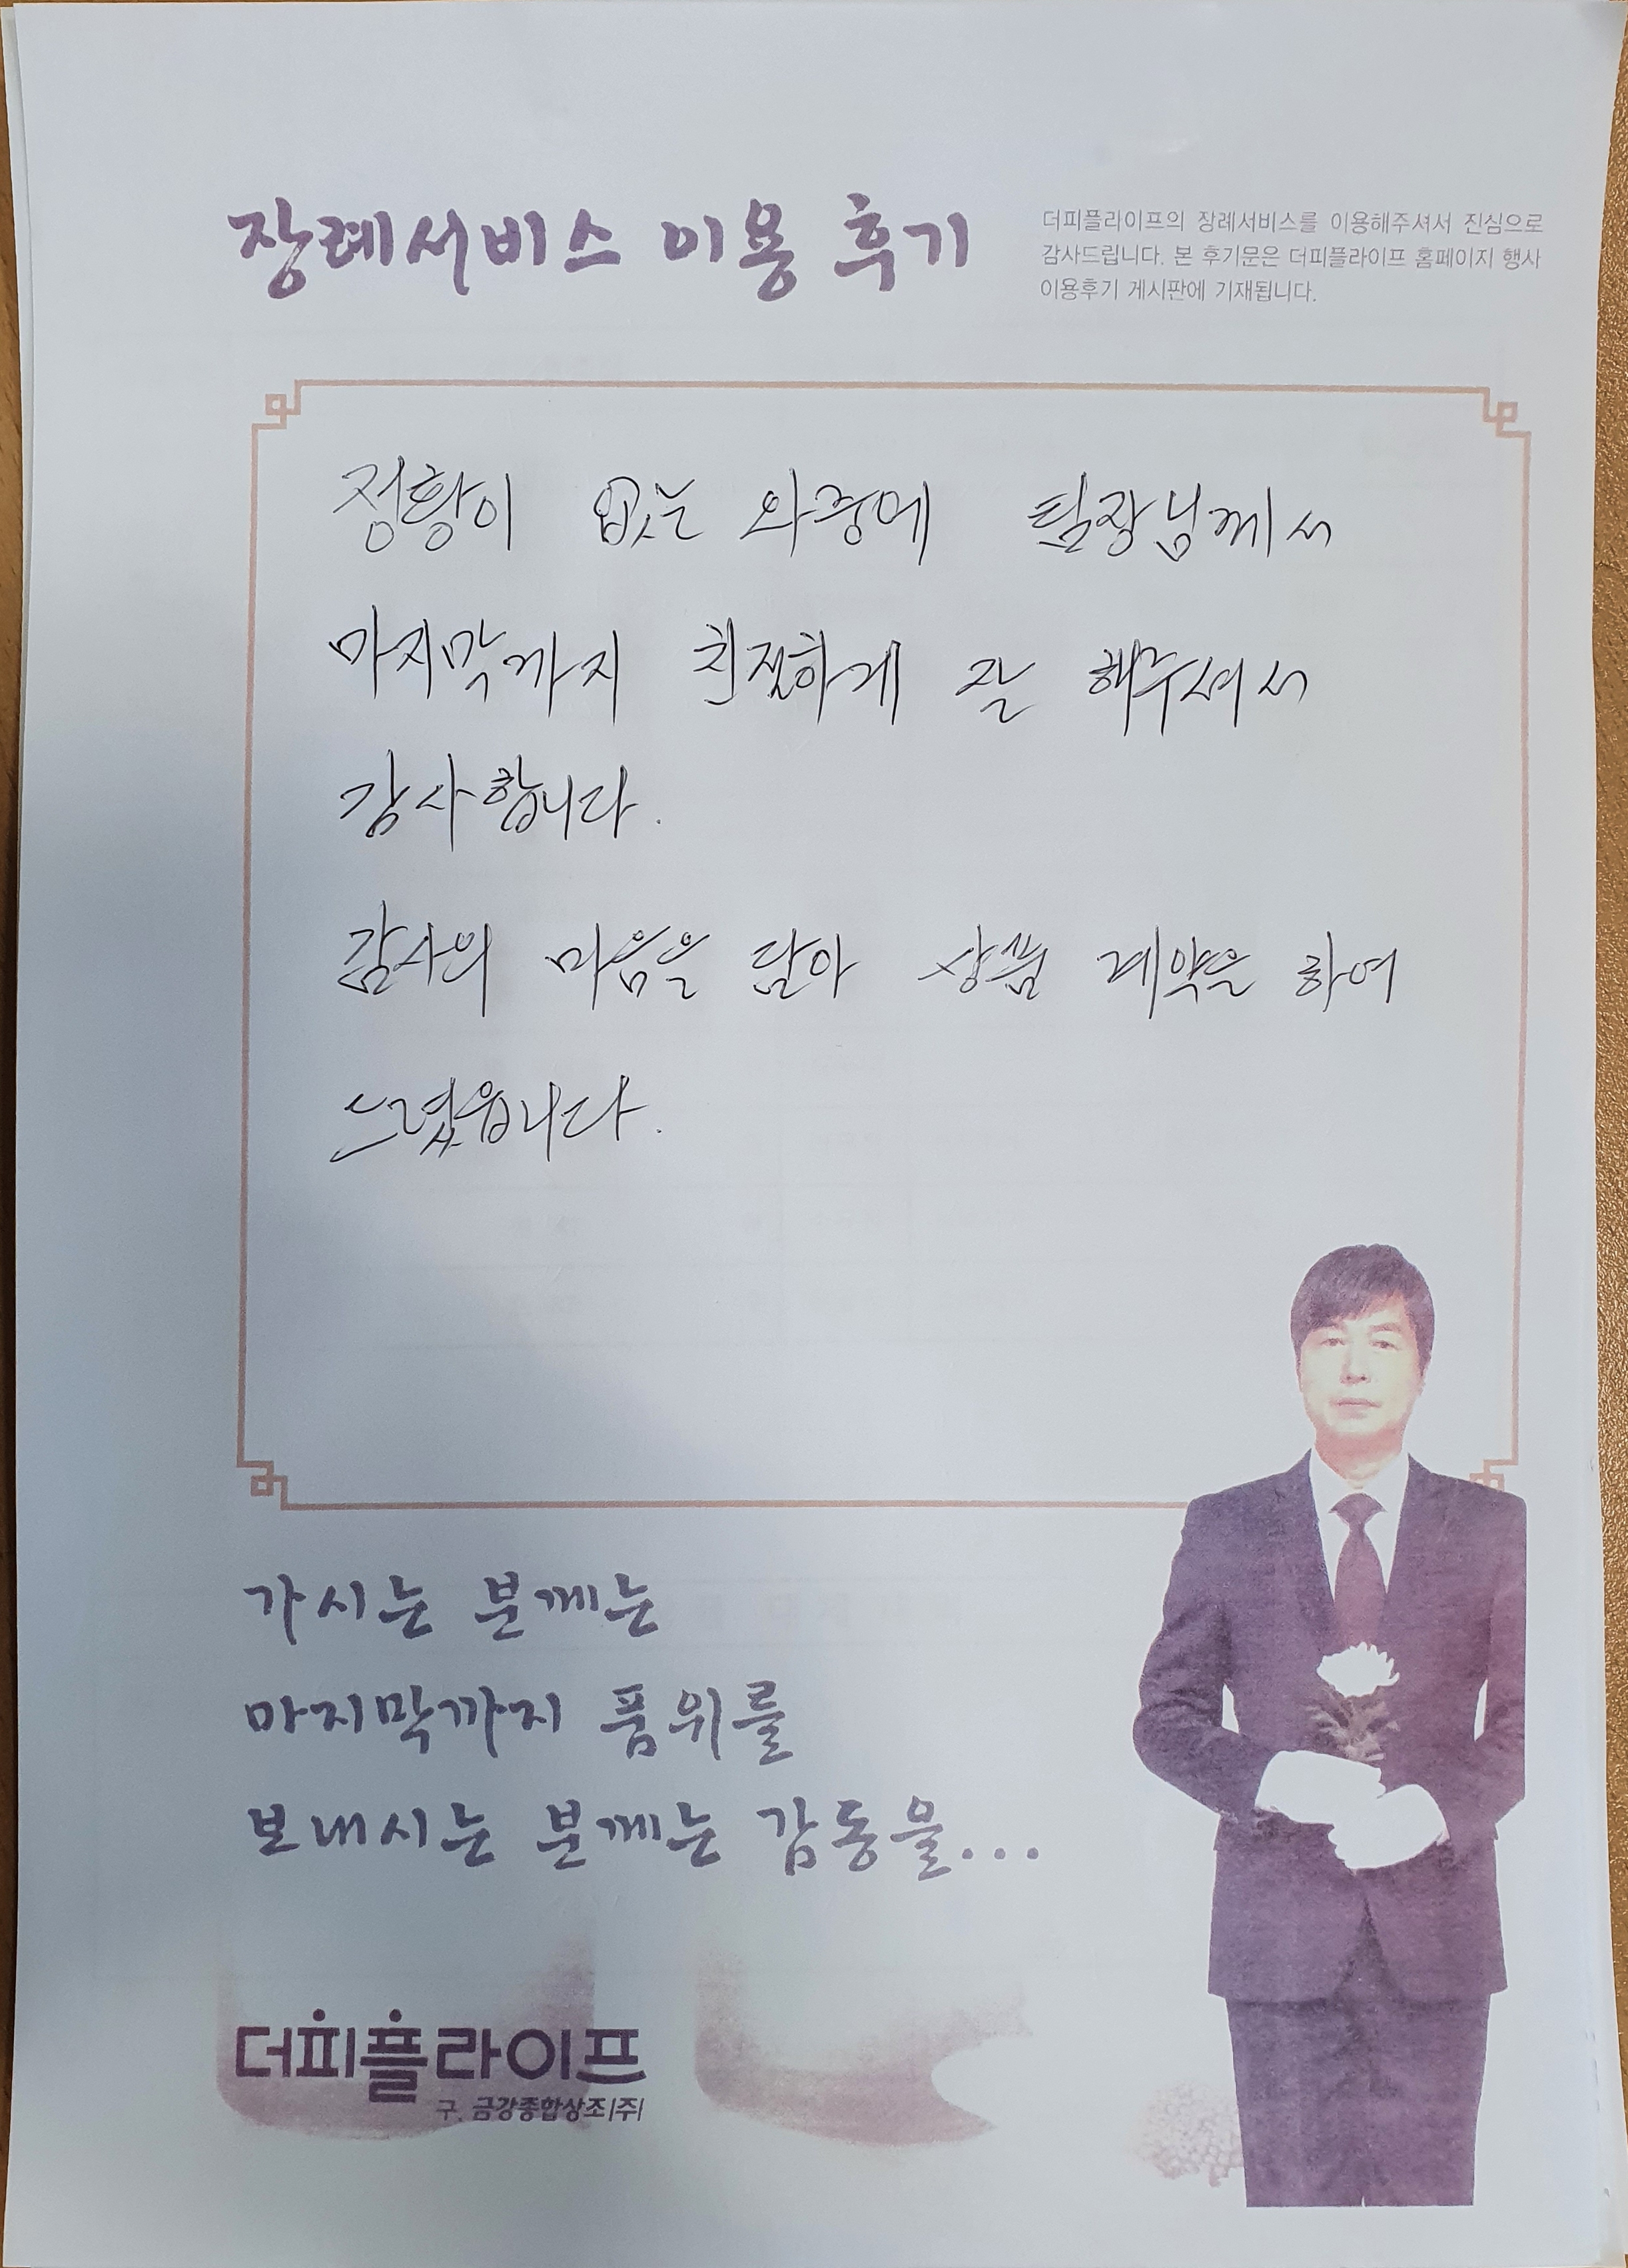 장례서비스 이용 후기
더피플라이프의 장례서비스를 이용해주셔서 진심으로
감사드립니다. 본 후기문은 더피플라이프 홈페이지 행사
이용후기 게시판에 기재됩니다.
정황이 없는 와중에 팀장님께서
마지막까지 친절하게 잘 해주셔서
감사합니다.
감사의 마음을 담아 상품 계약을 하여
드렸읍니다.
가시는 분께는
마지막까지 품위를
보내시는 분께는 감동을...
더피플라이프
구. 금강종합상조(주)